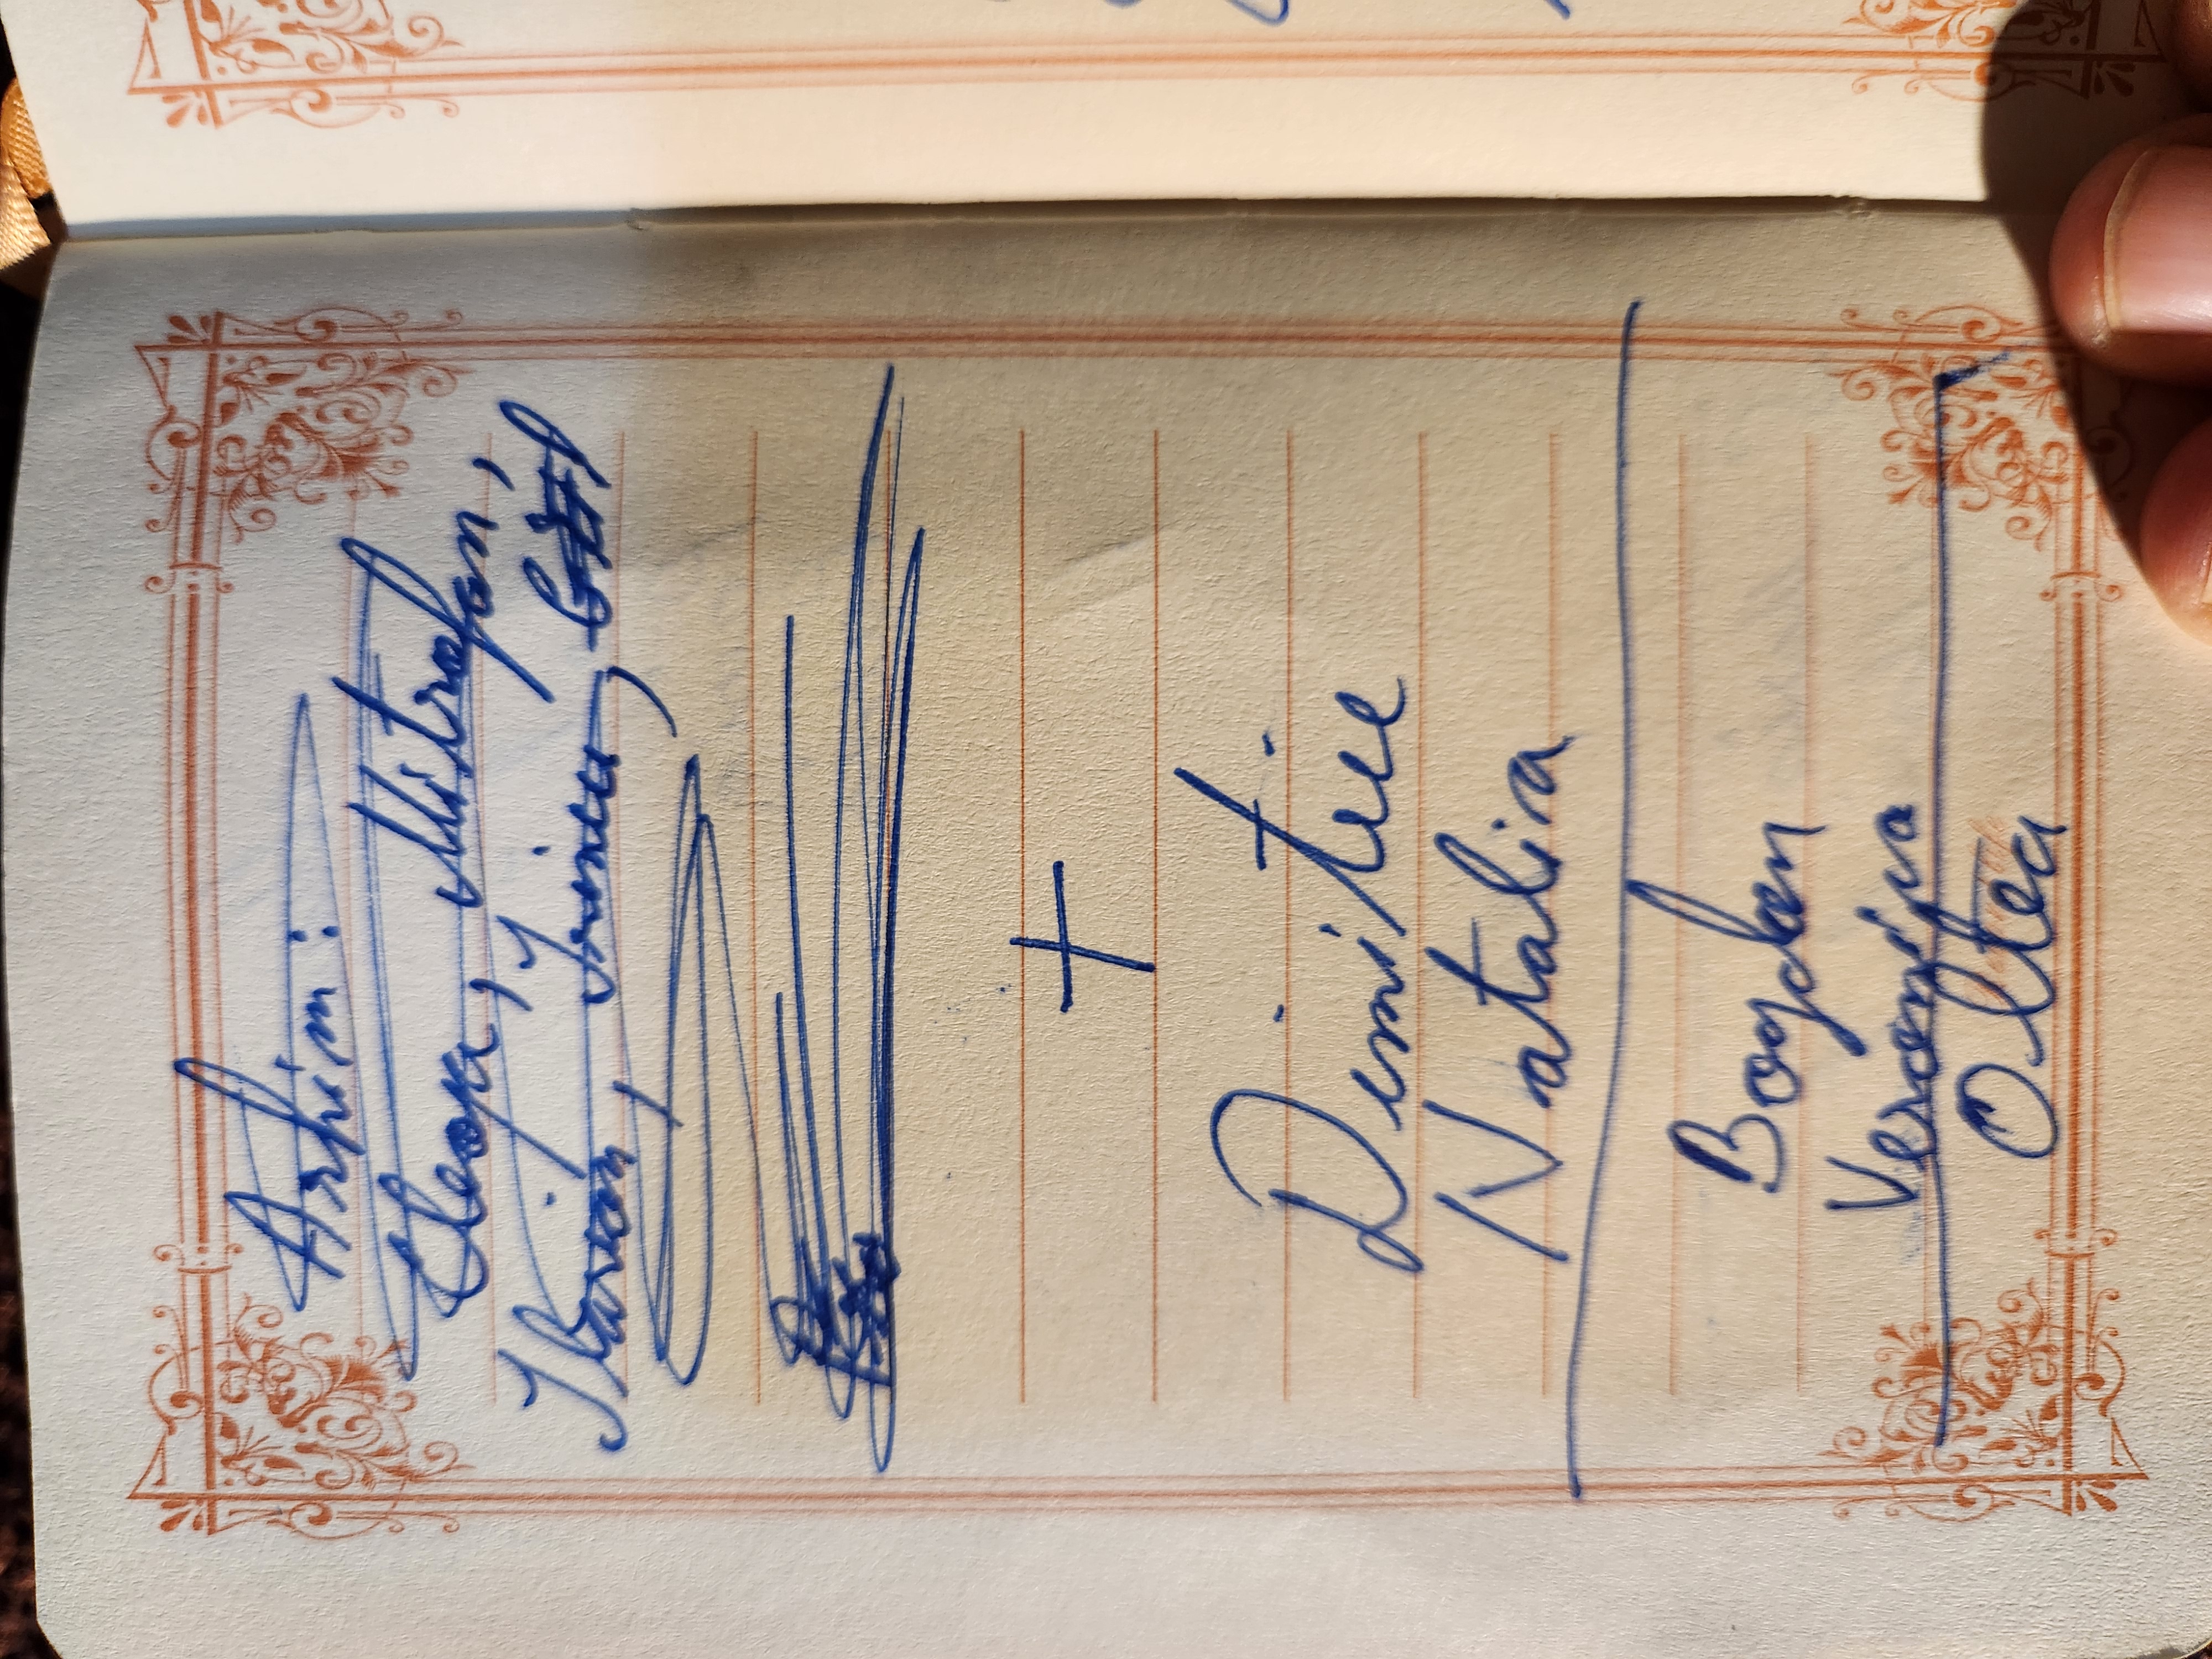 Arhim:
Cleopa, Mitrofan,
Ilarion, Irineu,
+
Dimitrie
Natalia
Bogdan
Veronica
Oltea